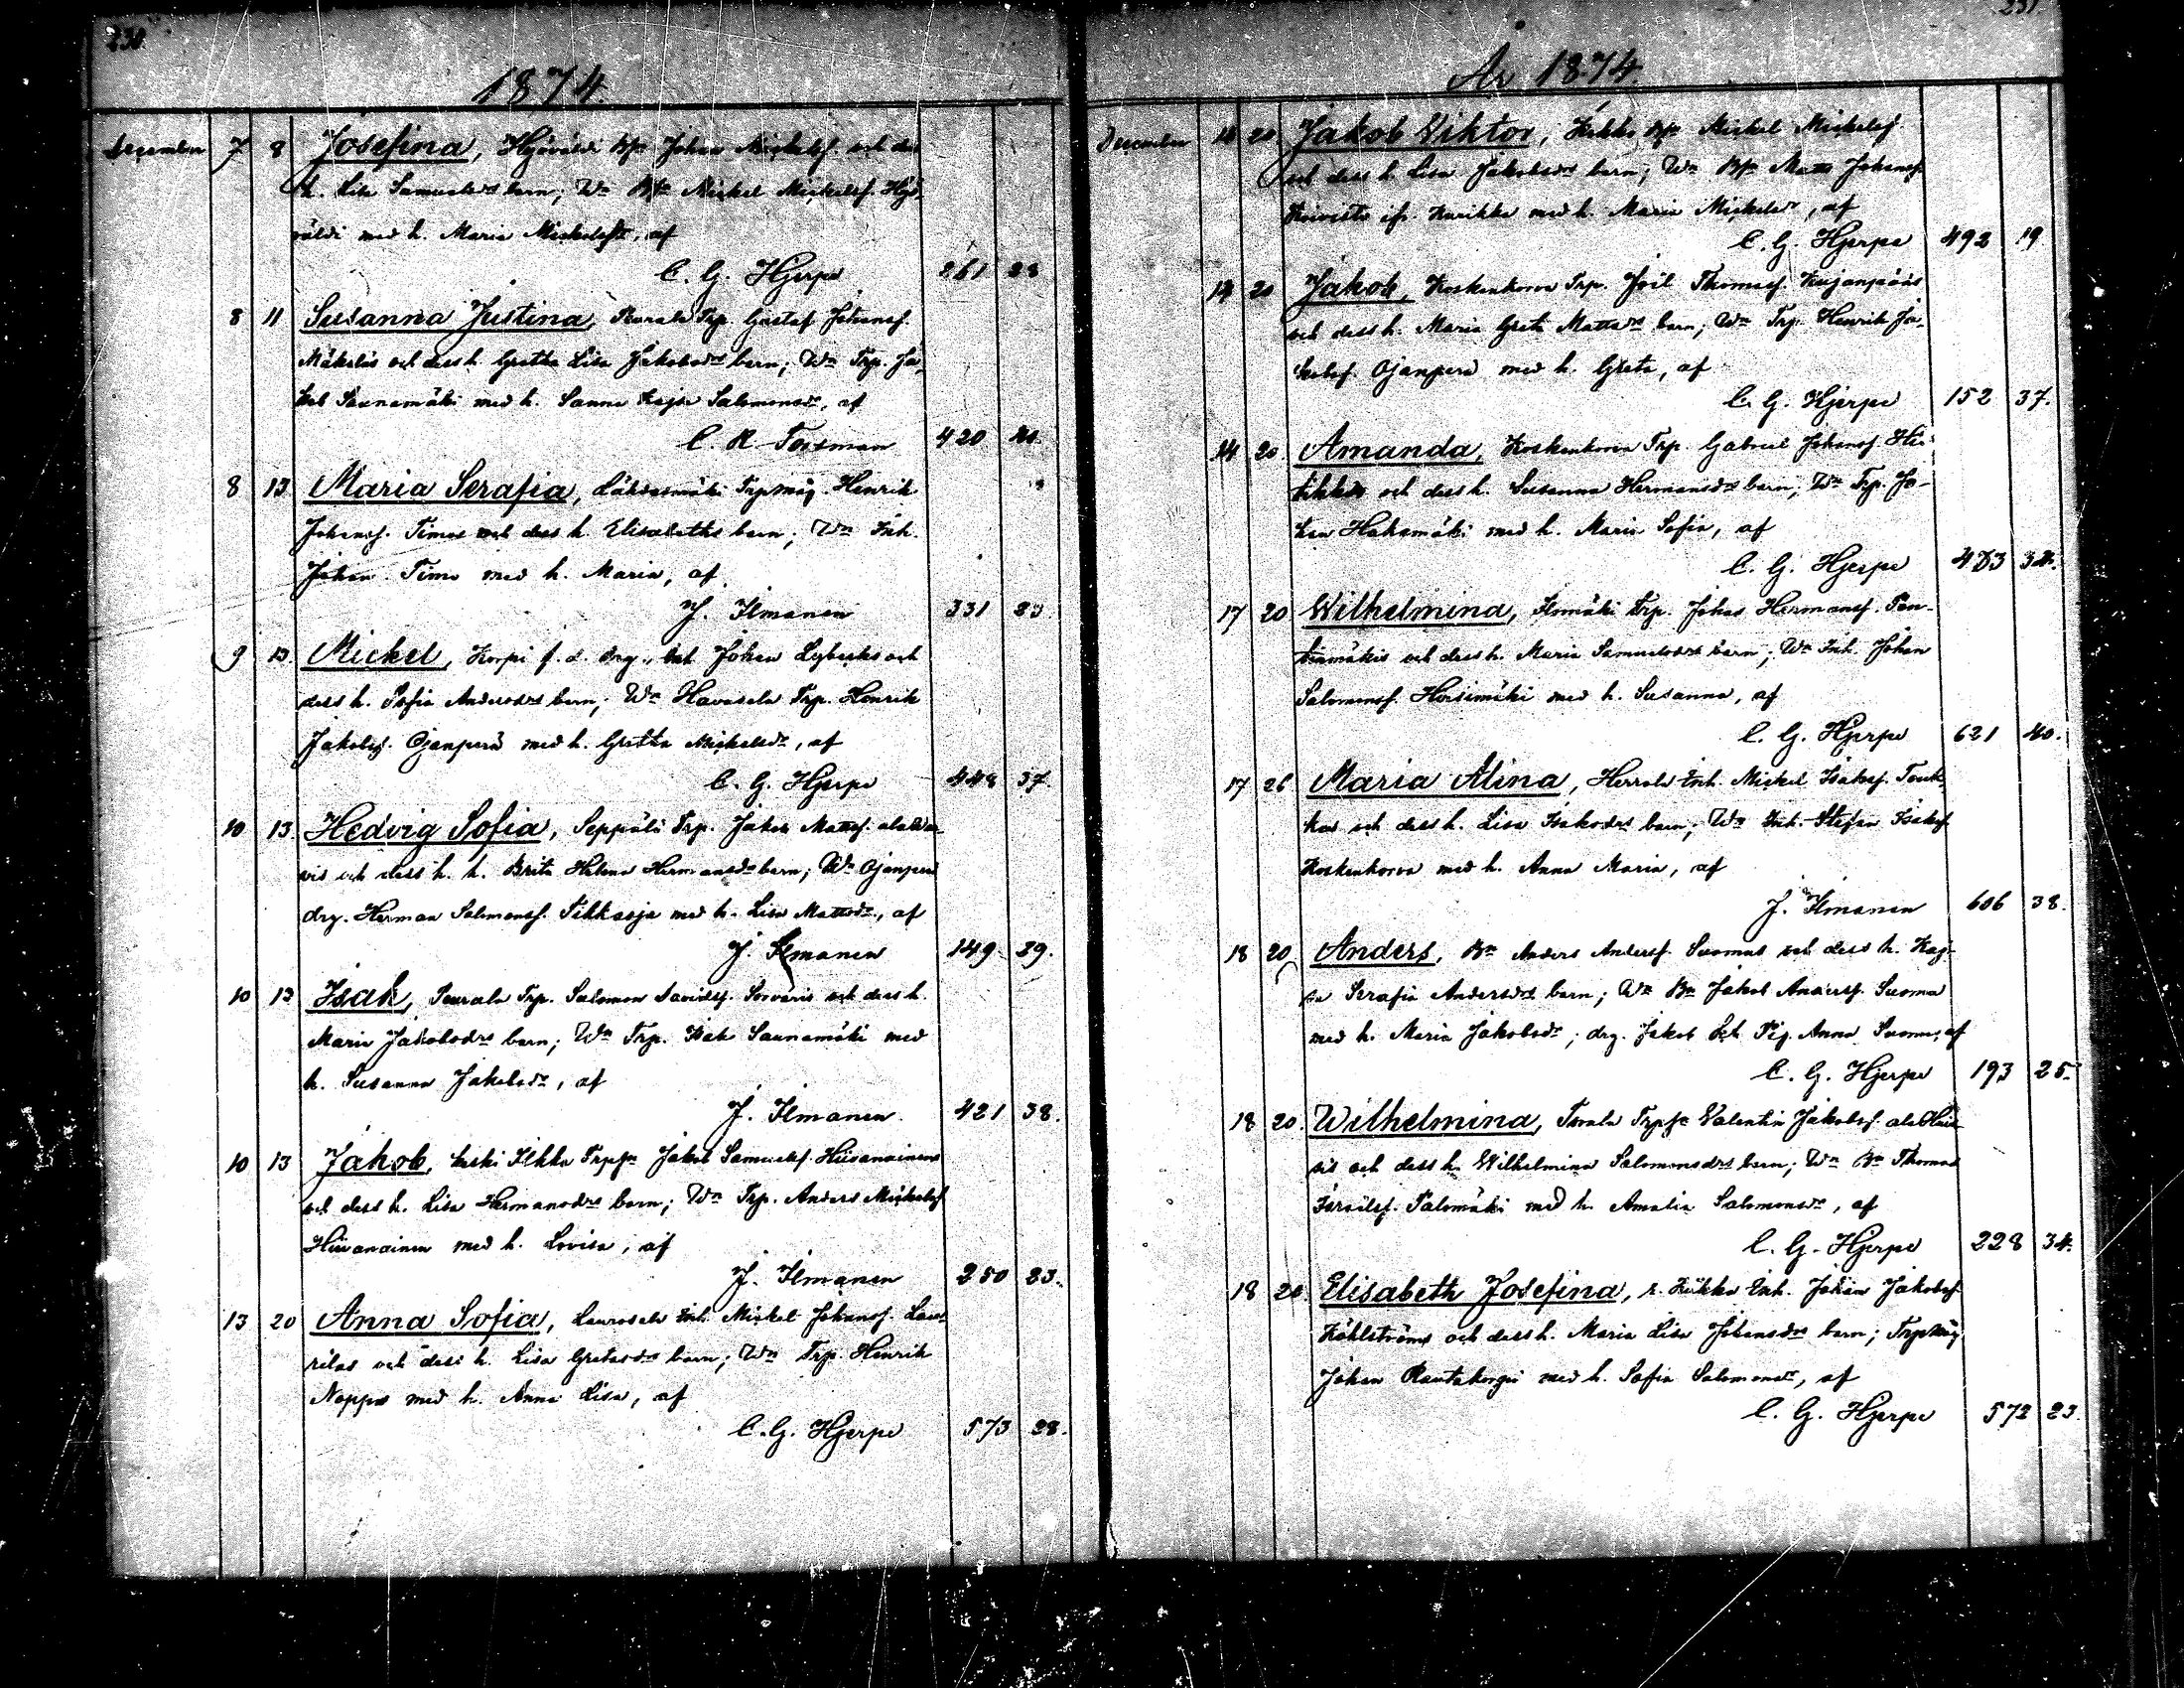 230
1874.
December 7 8 Josefina, Hyövälti Bfr Johan Mickelsf. och des
h. Lisa Samuelsdrs barn; Wn Bfr Mickel Mickelsf. Hyö-
välti med h. Maria Mickelsdr, af
C. G. Hjerpe 261 28
8 11 Susanna Justina, Peurala Trp. Gustaf Johansf.
Mäkeläs och dess h. Gretha Lisa Jakobsdrs barn; Wn Trp. Ja-
kob Saunamäki med h. Sanna Kajsa Salomonsdr, af
C. R. Forsman 420 40.
8 13 Maria Serafia, Trpmåg Henrik
Johansf. Timos och dess h. Elisabeths barn; Wn Inh.
Johan Timo med h. Maria, af
J. Ilmanen 331 23.
9 13. Mickel, Korpi f. d. drg., Inh Johan Lybecks och
dess h. Sofia Andersdrs barn; Wn Havusela Trp. Henrik
Jakobsf. Ojanperä med h. Gretha Mickelsdr, af
C. G. Hjerpe 448 37.
10 13. Hedvig Sofia, Seppälä Trp. Jakob Mattsf. ala
vis och dess h. h. Brita Helena Hermansdrs barn; Wn Ojanperä
drg. Herman Salomonsf. Tikkaoja med h. Lisa Mattsdr, af
J. Ilmanen 149. 29.
10 13 Isak, Peurala Trp. Salomon Davidsf. Sorvaris och dess h.
Maria Jakobsdrs barn; Wn Trp. Isak Saunamäki med
h. Susanna Jakobsdr, af
J. Ilmanen. 421 38.
10 13 Jakob, Keski Ilkka Trpfr Jakob Samuelsf. Hiivanainens
och dess h. Lisa Hermansdrs barn; Wn Trp. Anders Mickelsf
Hiivanainen med h. Lovisa, af
J. Ilmanen 250 23.
13 20 Anna Sofia, Laurosela Inh. Mickel Johansf. Lau-
rilas och dess h. Lisa Gretasdrs barn; Wn Trp. Henrik
Noppo med h. Anna Lisa, af
C. G. Hjerpe 573 28.
231
År 1874.
December 14 20 Jakob Viktor, Kokko Bfr Mickel Mickelsf.
och dess h. Lisa Jakobsdrs barn; Wn Bfr Matts Johansf.
Koivisto ifr. Kurikka med h. Maria Mickelsdr, af
C. G. Hjerpe 492 19
14 20 Jakob, Koskenkorva Trp. Joël Thomasf. Kujanpääs
och dess h. Maria Greta Mattsdrs barn; Wn Trp. Henrik Ja-
kobsf. Ojanperä med h. Greta, af
C. G. Hjerpe 152 37.
14 20 Amanda, Koskenkorva Trp. Gabriel Johansf. Hie-
tikkos och dess h. Susanna Hermansdrs barn; Wn Trp. Jo-
han Hakamäki med h. Maria Sofia, af
C. G. Hjerpe 483 34.
17 20 Wilhelmina, Ilomäki Trp. Johan Hermansf. Pen-
tinmäkis och dess h. Maria Samuelsdrs barn; Wn Inh. Johan
Salomonsf. Hoisimäki med h. Susanna, af
C. G. Hjerpe 621 40.
17 26 Maria Alina, Herrala Inh. Mickel Isaksf. Touk-
kos och dess h. Lisa Isaksdrs barn; Wn Inh. Stefan Isaksf
Koskenkorva med h. Anna Maria, af
J. Ilmanen 606 38.
18 20 Anders, Bn Anders Andersf. Suomus och dess h. Kaj-
sa Serafia Andersdrs barn; Wn Bn Jakob Andersf. Suoma
med h. Maria Jakobsdr; drg. Jakob och Pig. Anna Suoma, af
C. G. Hjerpe 193 25.
18 20. Wilhelmina, Turala Trpfr Valentin Jakobsf. ala
sis och dess h. Wilhelmina Salomonsdrs barn; Wn Bn Thomas
Israëlsf. Palomäki med h. Amalia Salomonsdr, af
C. G. Hjerpe 228 34.
18 20. Elisabeth Josefina, r. Kukko Inh. Johan Jakobsf.
Kåhlströms och dess h. Maria Lisa Johansdrs barn; Trpmåg
Johan Rautakorpi med h. Sofia Salomonsdr, af
C. G. Hjerpe 572 23.